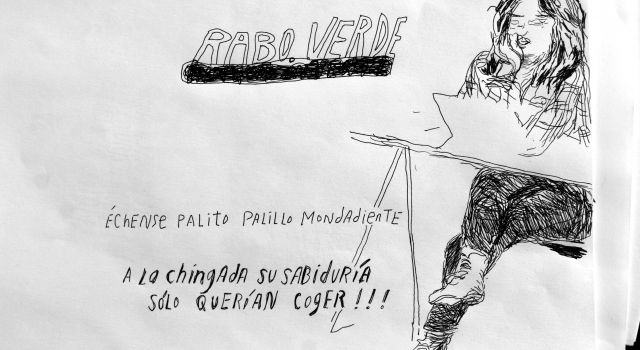 RABO VERDE
ÉCHENSE PALITO PALILLO MONDADIENTE
A LA chingADA SU SABIDURÍA
SÓLO QUERÍAN COGER!!!